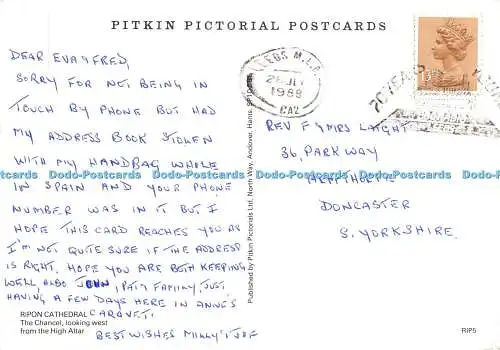 PITKIN PICTORIAL POSTCARDS
DEAR EVA & FRED,
SORRY FOR NOT BEING IN
TOUCH BY PHONE BUT HAD
MY ADDRESS BOOK STOLEN
WITH MY HANDBAG WHILE
IN SPAIN AND YOUR PHONE
NUMBER WAS IN IT BUT I
HOPE THIS CARD REACHES YOU AS
I'M NOT QUITE SURE IF THE ADDRESS
IS RIGHT. HOPE YOU ARE BOTH KEEPING
WELL, ALSO JOHN, PAT & FAMILY, JUST
HAVING A FEW DAYS HERE IN ANNE'S
CARAVET.
BEST WISHES MILLY & JOE
RIPON CATHEDRAL
The Chancel, looking west
from the High Altar
Published by Pitkin Pictorials Ltd, North Way, Andover, Hants.
LEEDS M.L.O.
1988
20 YEARS
13
REV F & MRS LAIGHT
36, PARKWAY
ARMTHORPE
DONCASTER
S. YORKSHIRE.
RIP5
Dodo-Postcards Dodo-Postcards Dodo-Postcards Dodo-Postcards Dodo-Postcards